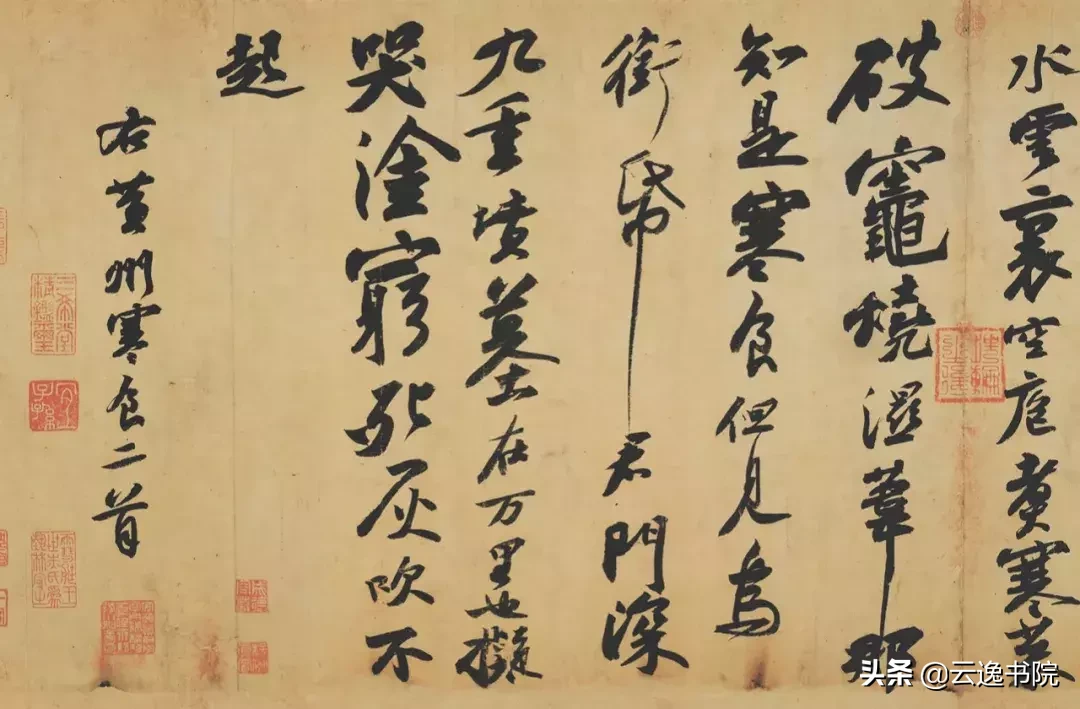 水雲裏空庖煑寒菜
破竈燒濕葦那
知是寒食但見烏
銜帋君門深
九重墳墓在万里也擬
哭塗窮死灰吹不
起
右黃州寒食二首
三希堂精鑑璽
宜子孫
头条 @云逸书院